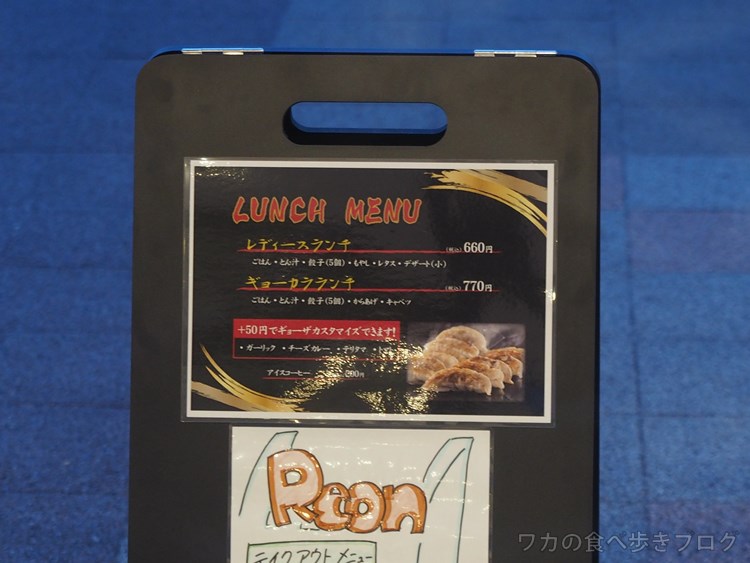 LUNCH MENU
レディースランチ (税込) 660円
ごはん・とん汁・餃子(5個)・もやし・レタス・デザート(小)
ギョーカラランチ (税込) 770円
ごはん・とん汁・餃子(5個)・からあげ・キャベツ
+50円でギョーザカスタマイズできます!
・ガーリック ・チーズカレー ・テリタマ
アイスコーヒー 200円
Reon
テイクアウトメニュー
ワカの食べ歩きブログ